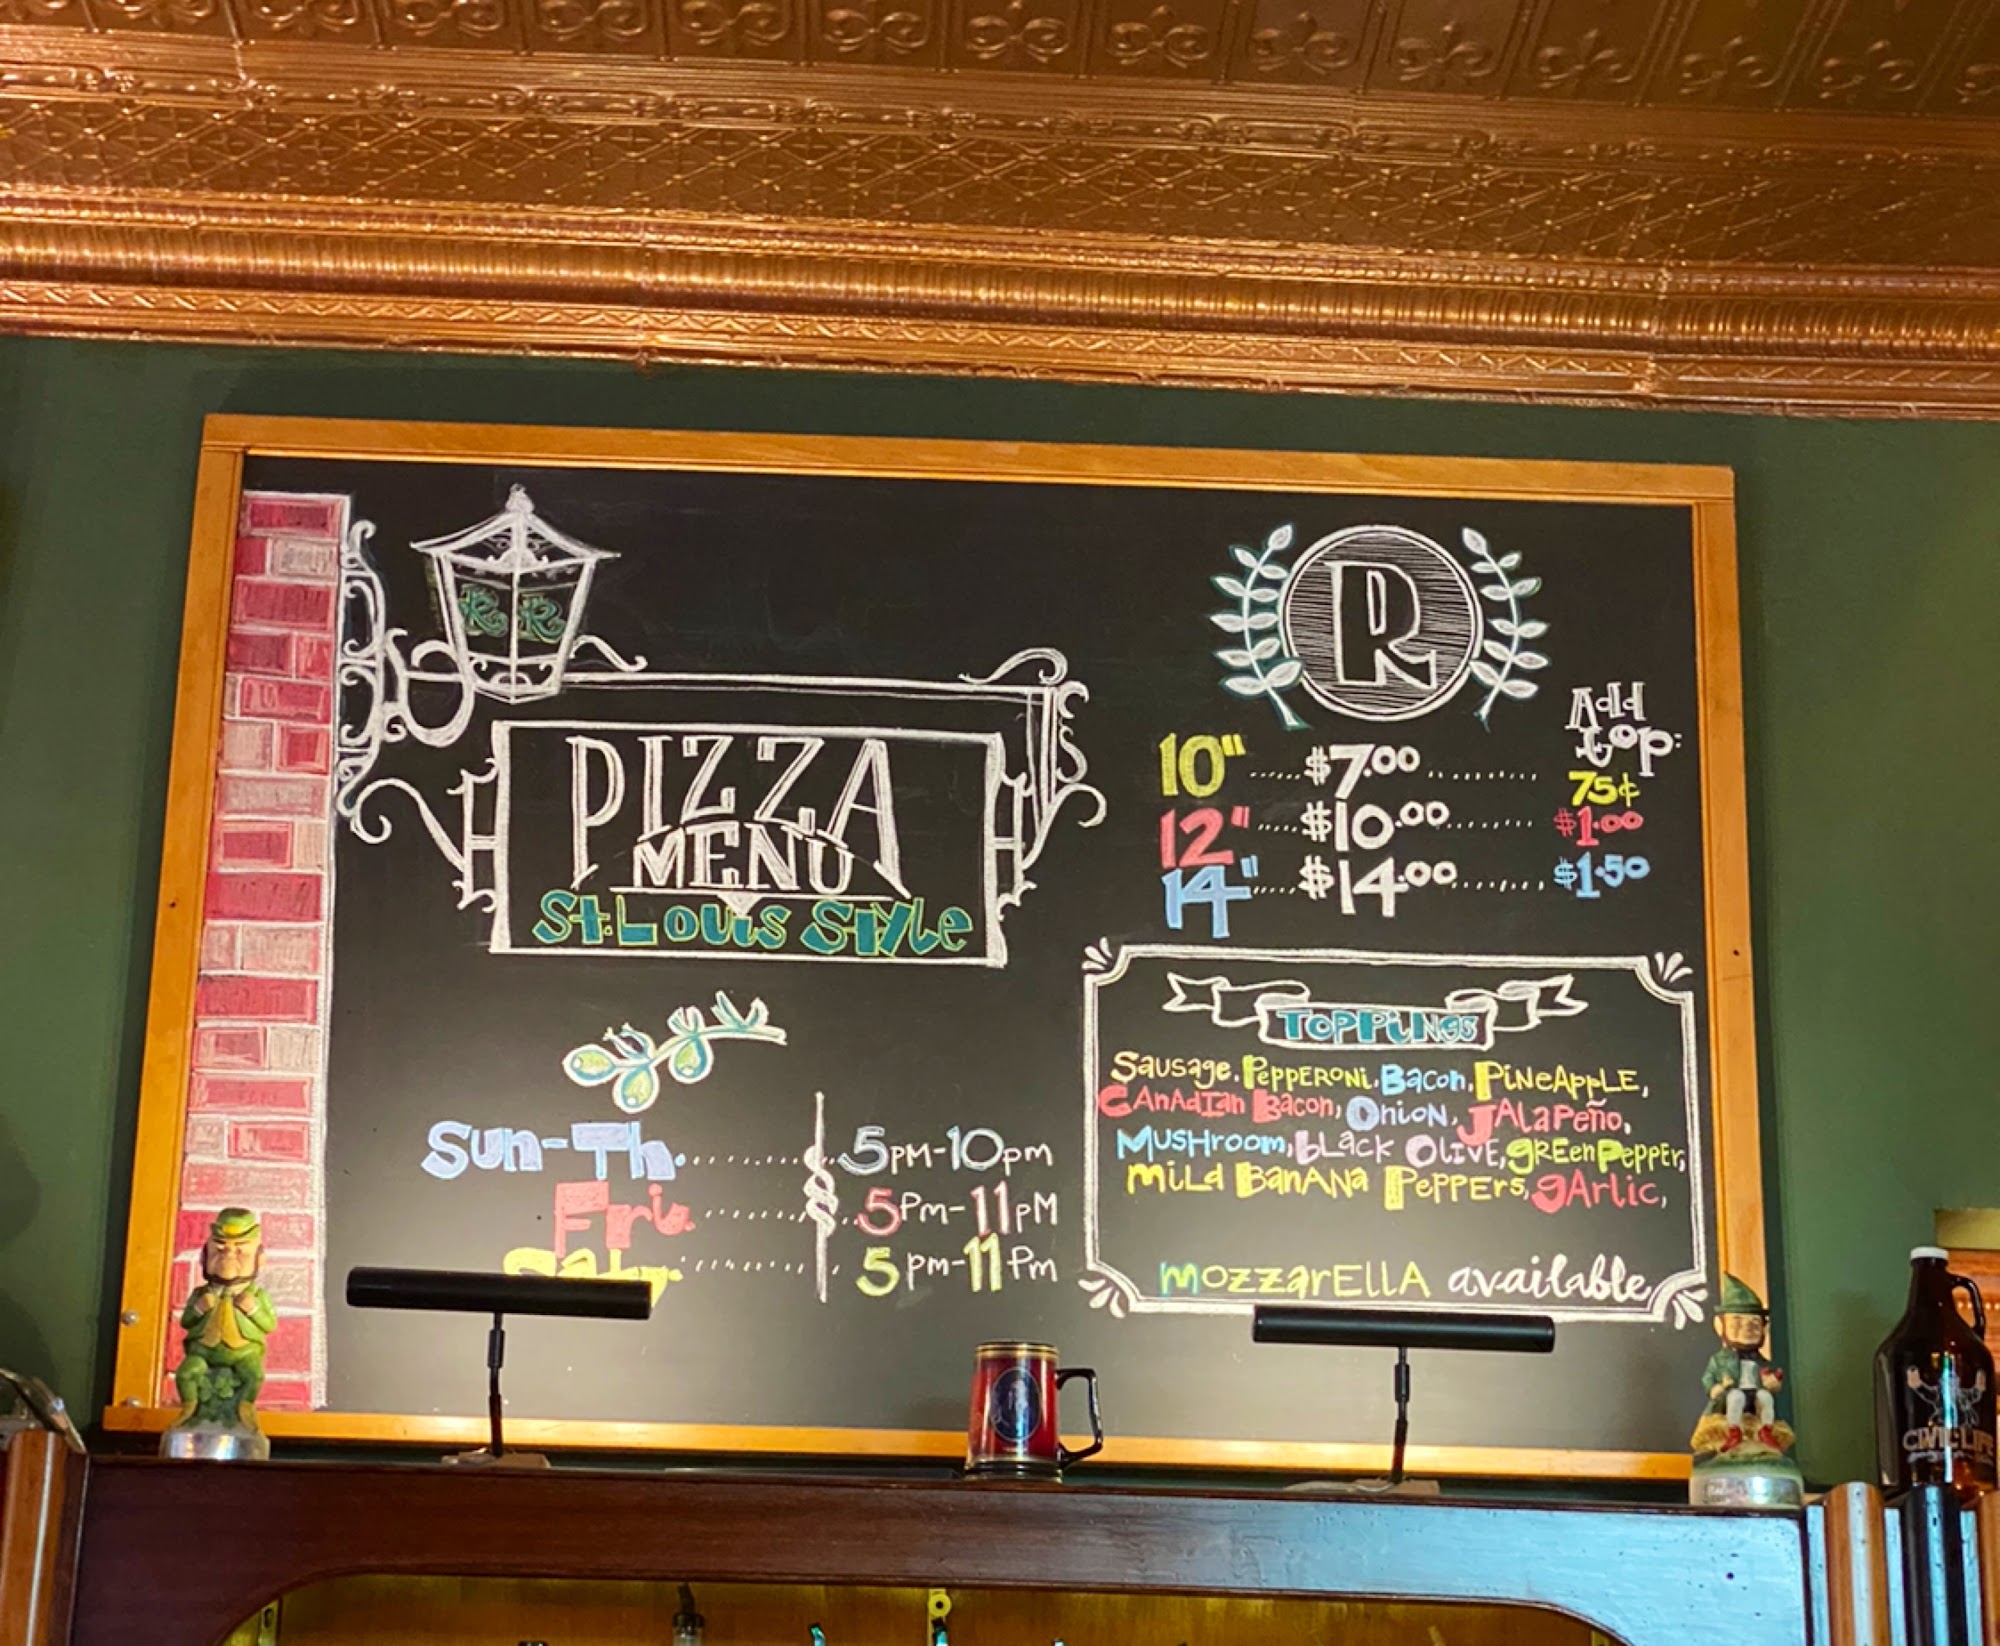 R R
PIZZA
MENU
St. Louis Style
Sun-Th. 5pm-10pm
Fri. 5pm-11pm
Sat. 5pm-11pm
R
Add top:
10" $7.00 75¢
12" $10.00 $1.00
14" $14.00 $1.50
TOPPiNGS
Sausage, PEPPERONi, Bacon, PiNEAppLE,
CAnAdIan Bacon, OnioN, JALaPeño,
MusHroom, bLack OLIVE, gREEnPEppEr,
MiLd BanANa PEPPErs, gArlic,
mozzarELLA available
CIVIL LIFE